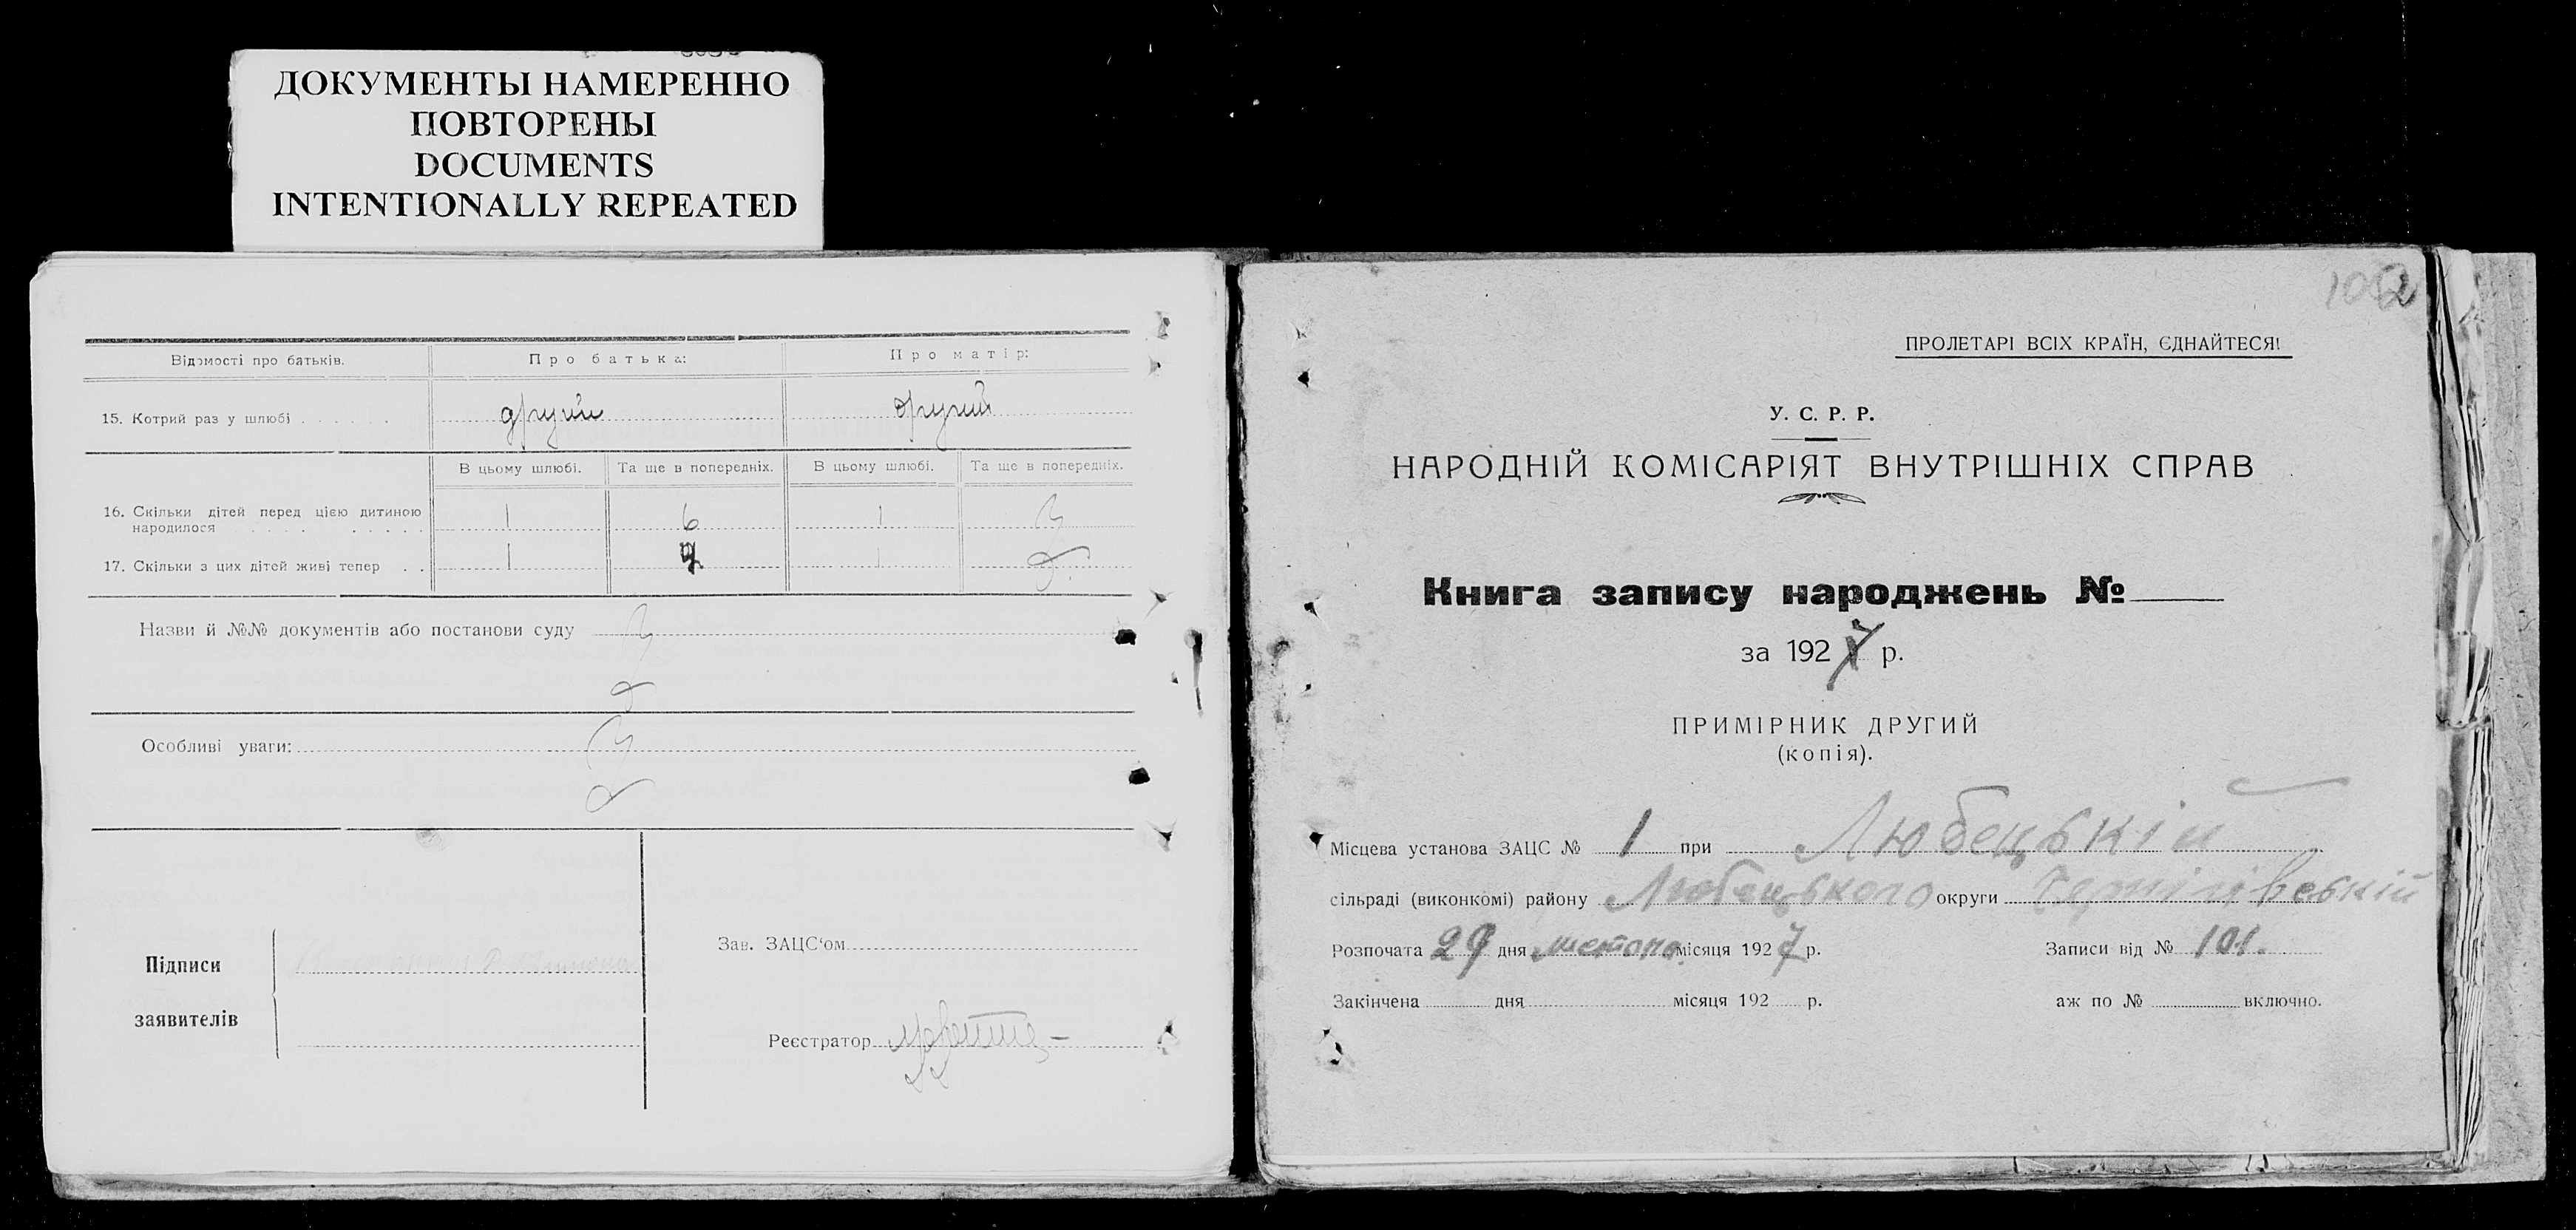 ДОКУМЕНТЫ НАМЕРЕННО
ПОВТОРЕНЫ
DOCUMENTS
INTENTIONALLY REPEATED
Відомості про батьків.
Про батька:
Про матір:
15. Котрий раз у шлюбі . . . . . .
другий
другий
В цьому шлюбі.
Та ще в попередніх.
В цьому шлюбі.
Та ще в попередніх.
16. Скільки дітей перед цією дитиною
народилося
1
6
1
17. Скільки з цих дітей живі тепер . .
1
1
Назви й №№ документів або постанови суду
Особливі уваги:
Підписи
заявителів
Зав. ЗАЦС'ом
Реєстратор
102
ПРОЛЕТАРІ ВСІХ КРАЇН, ЄДНАЙТЕСЯ!
У. С. Р. Р.
НАРОДНІЙ КОМІСАРІЯТ ВНУТРІШНІХ СПРАВ
Книга запису народжень №
за 1927 р.
ПРИМІРНИК ДРУГИЙ
(копія).
Місцева установа ЗАЦС № 1 при Любецькій
сільраді (виконкомі) району Любецького округи Чернігівській
Розпочата 29 дня місяця 1927 р.
Записи від № 101.
Закінчена дня місяця 192 р.
аж по № включно.